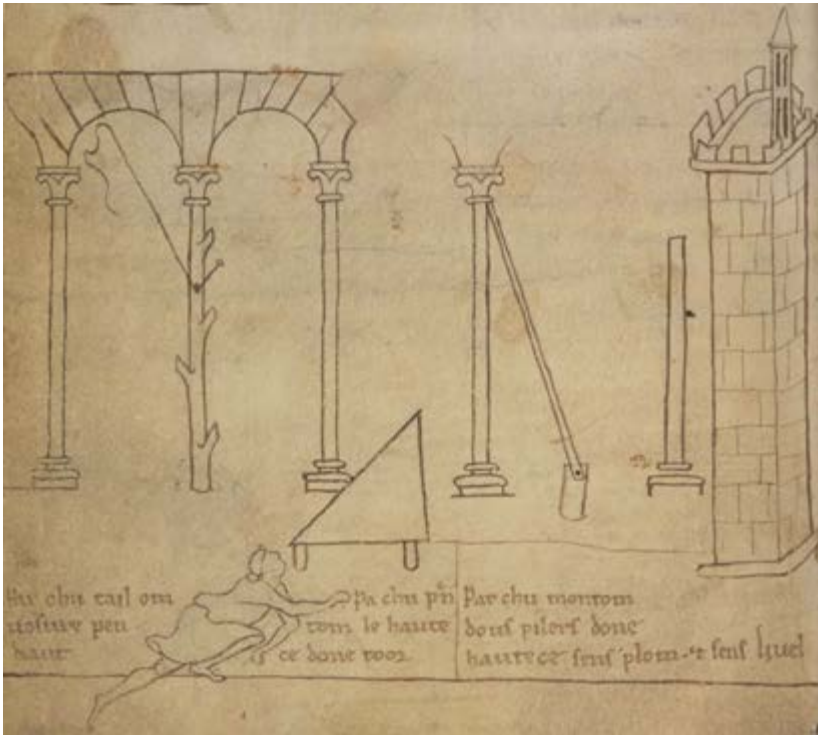 chu tail om
vosure pen
Pa chu pn
tom le haute
ce done toor
Par chu montom
dous pilers done
hautece sens plom ⁊ sens livel